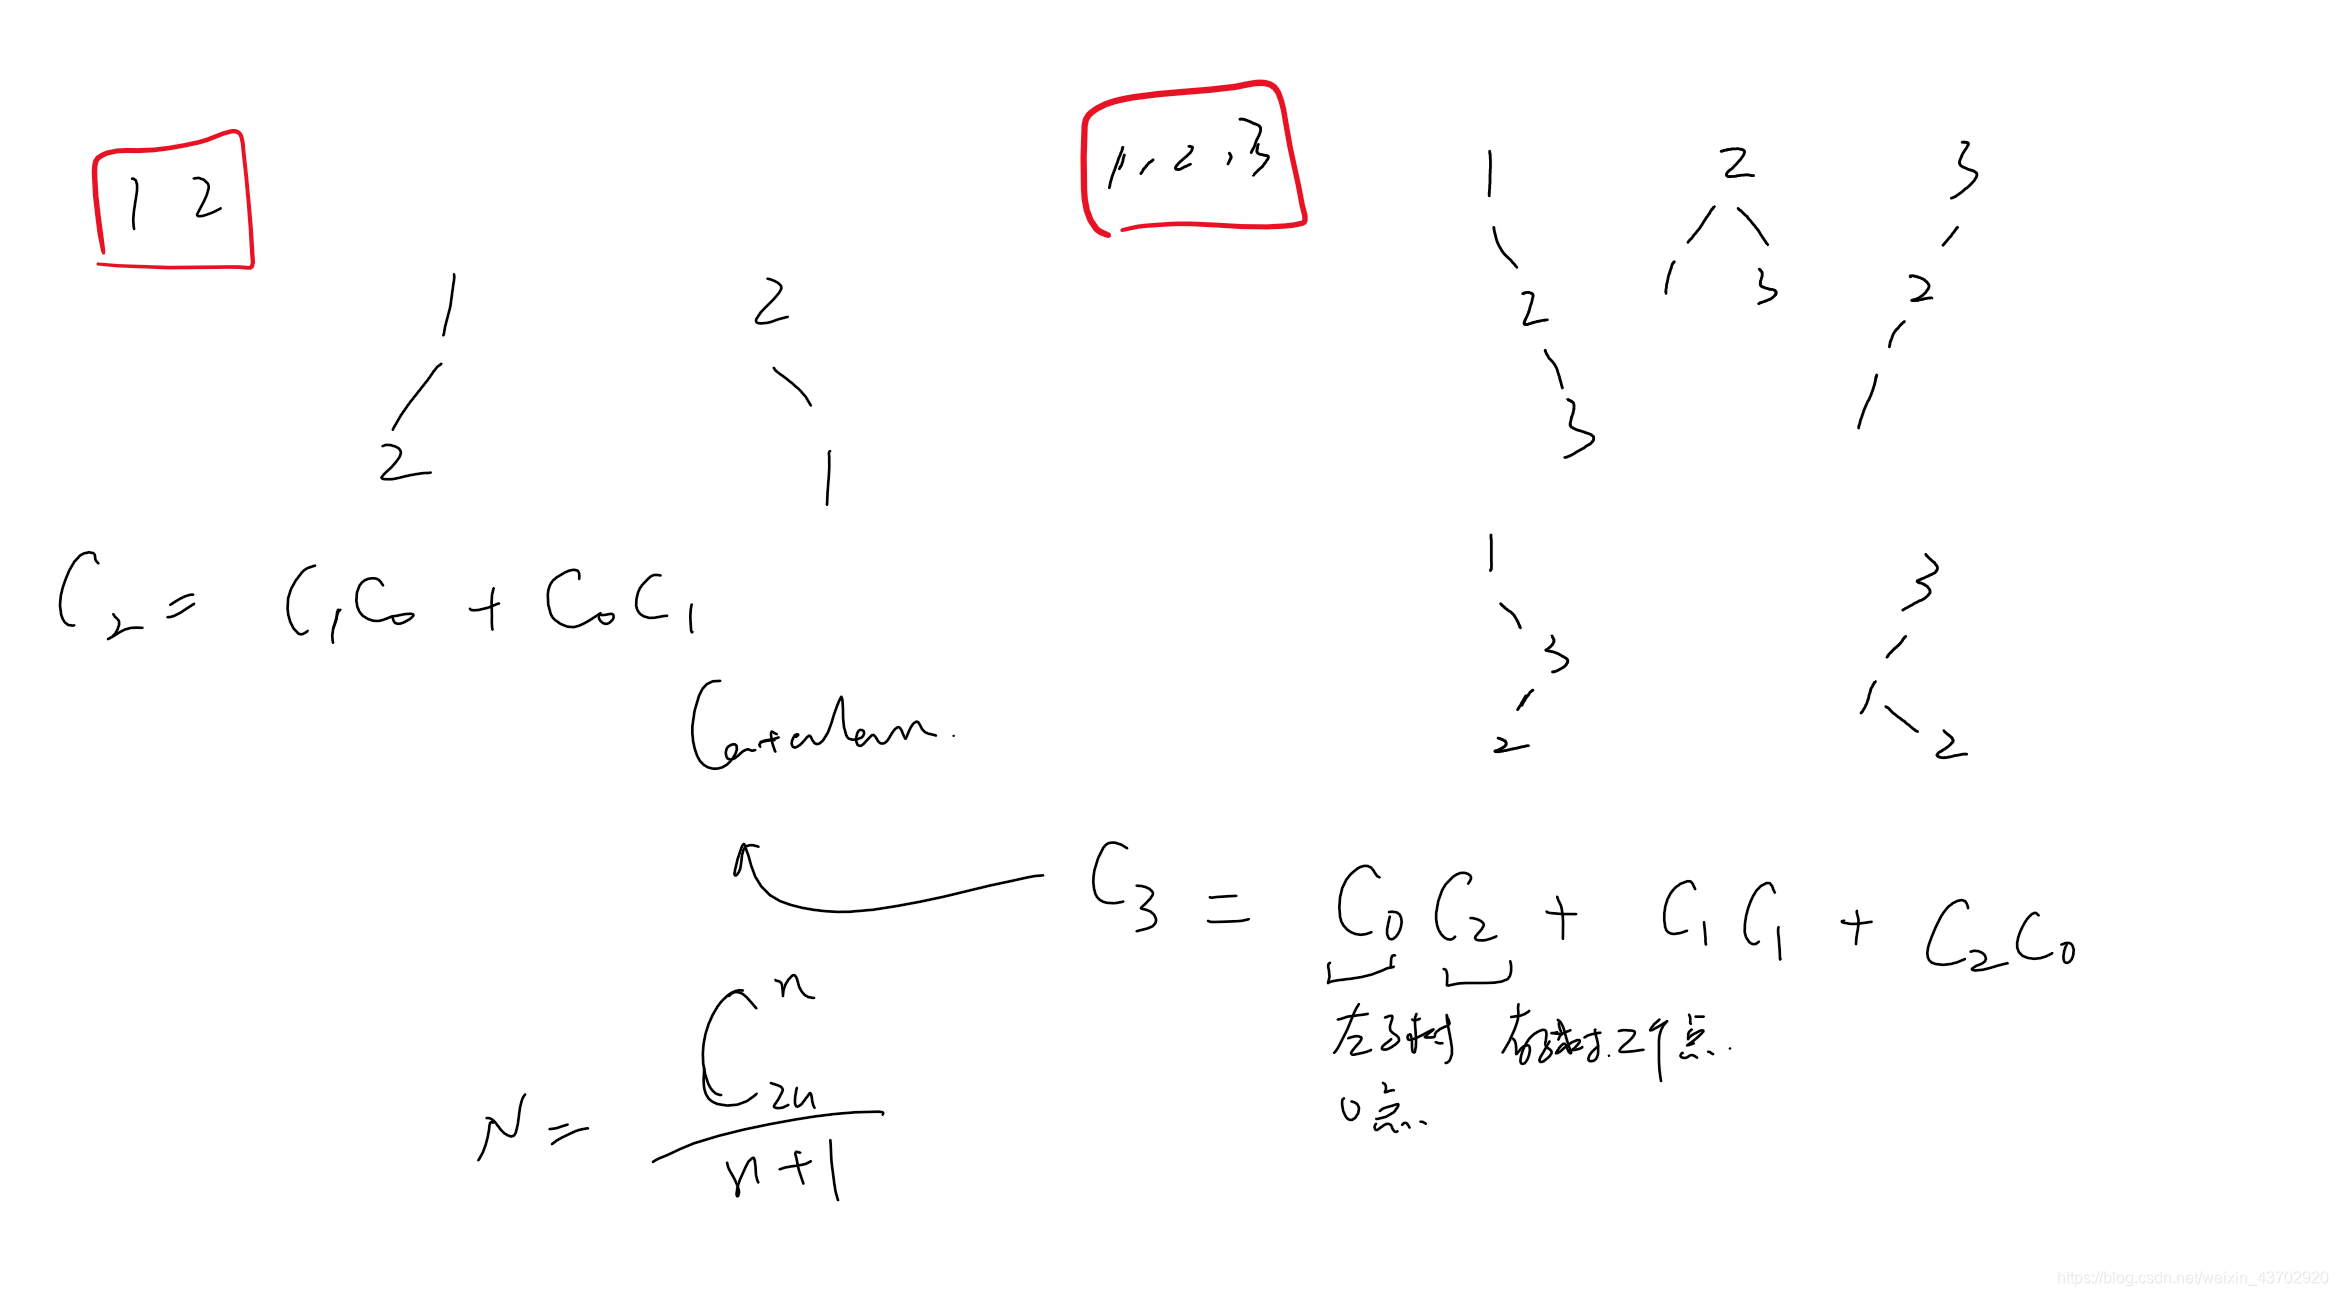 1 2
1
2
2
1
C₂ = C₁C₀ + C₀C₁
Catalan.
1, 2, 3
1
2
3
2
1 3
3
2
1
1
3
2
3
1
2
C₃ = C₀C₂ + C₁C₁ + C₂C₀
左子树 右子树.2个点.
0点.
N = C₂ₙⁿ / n+1
https://blog.csdn.net/weixin_43702920